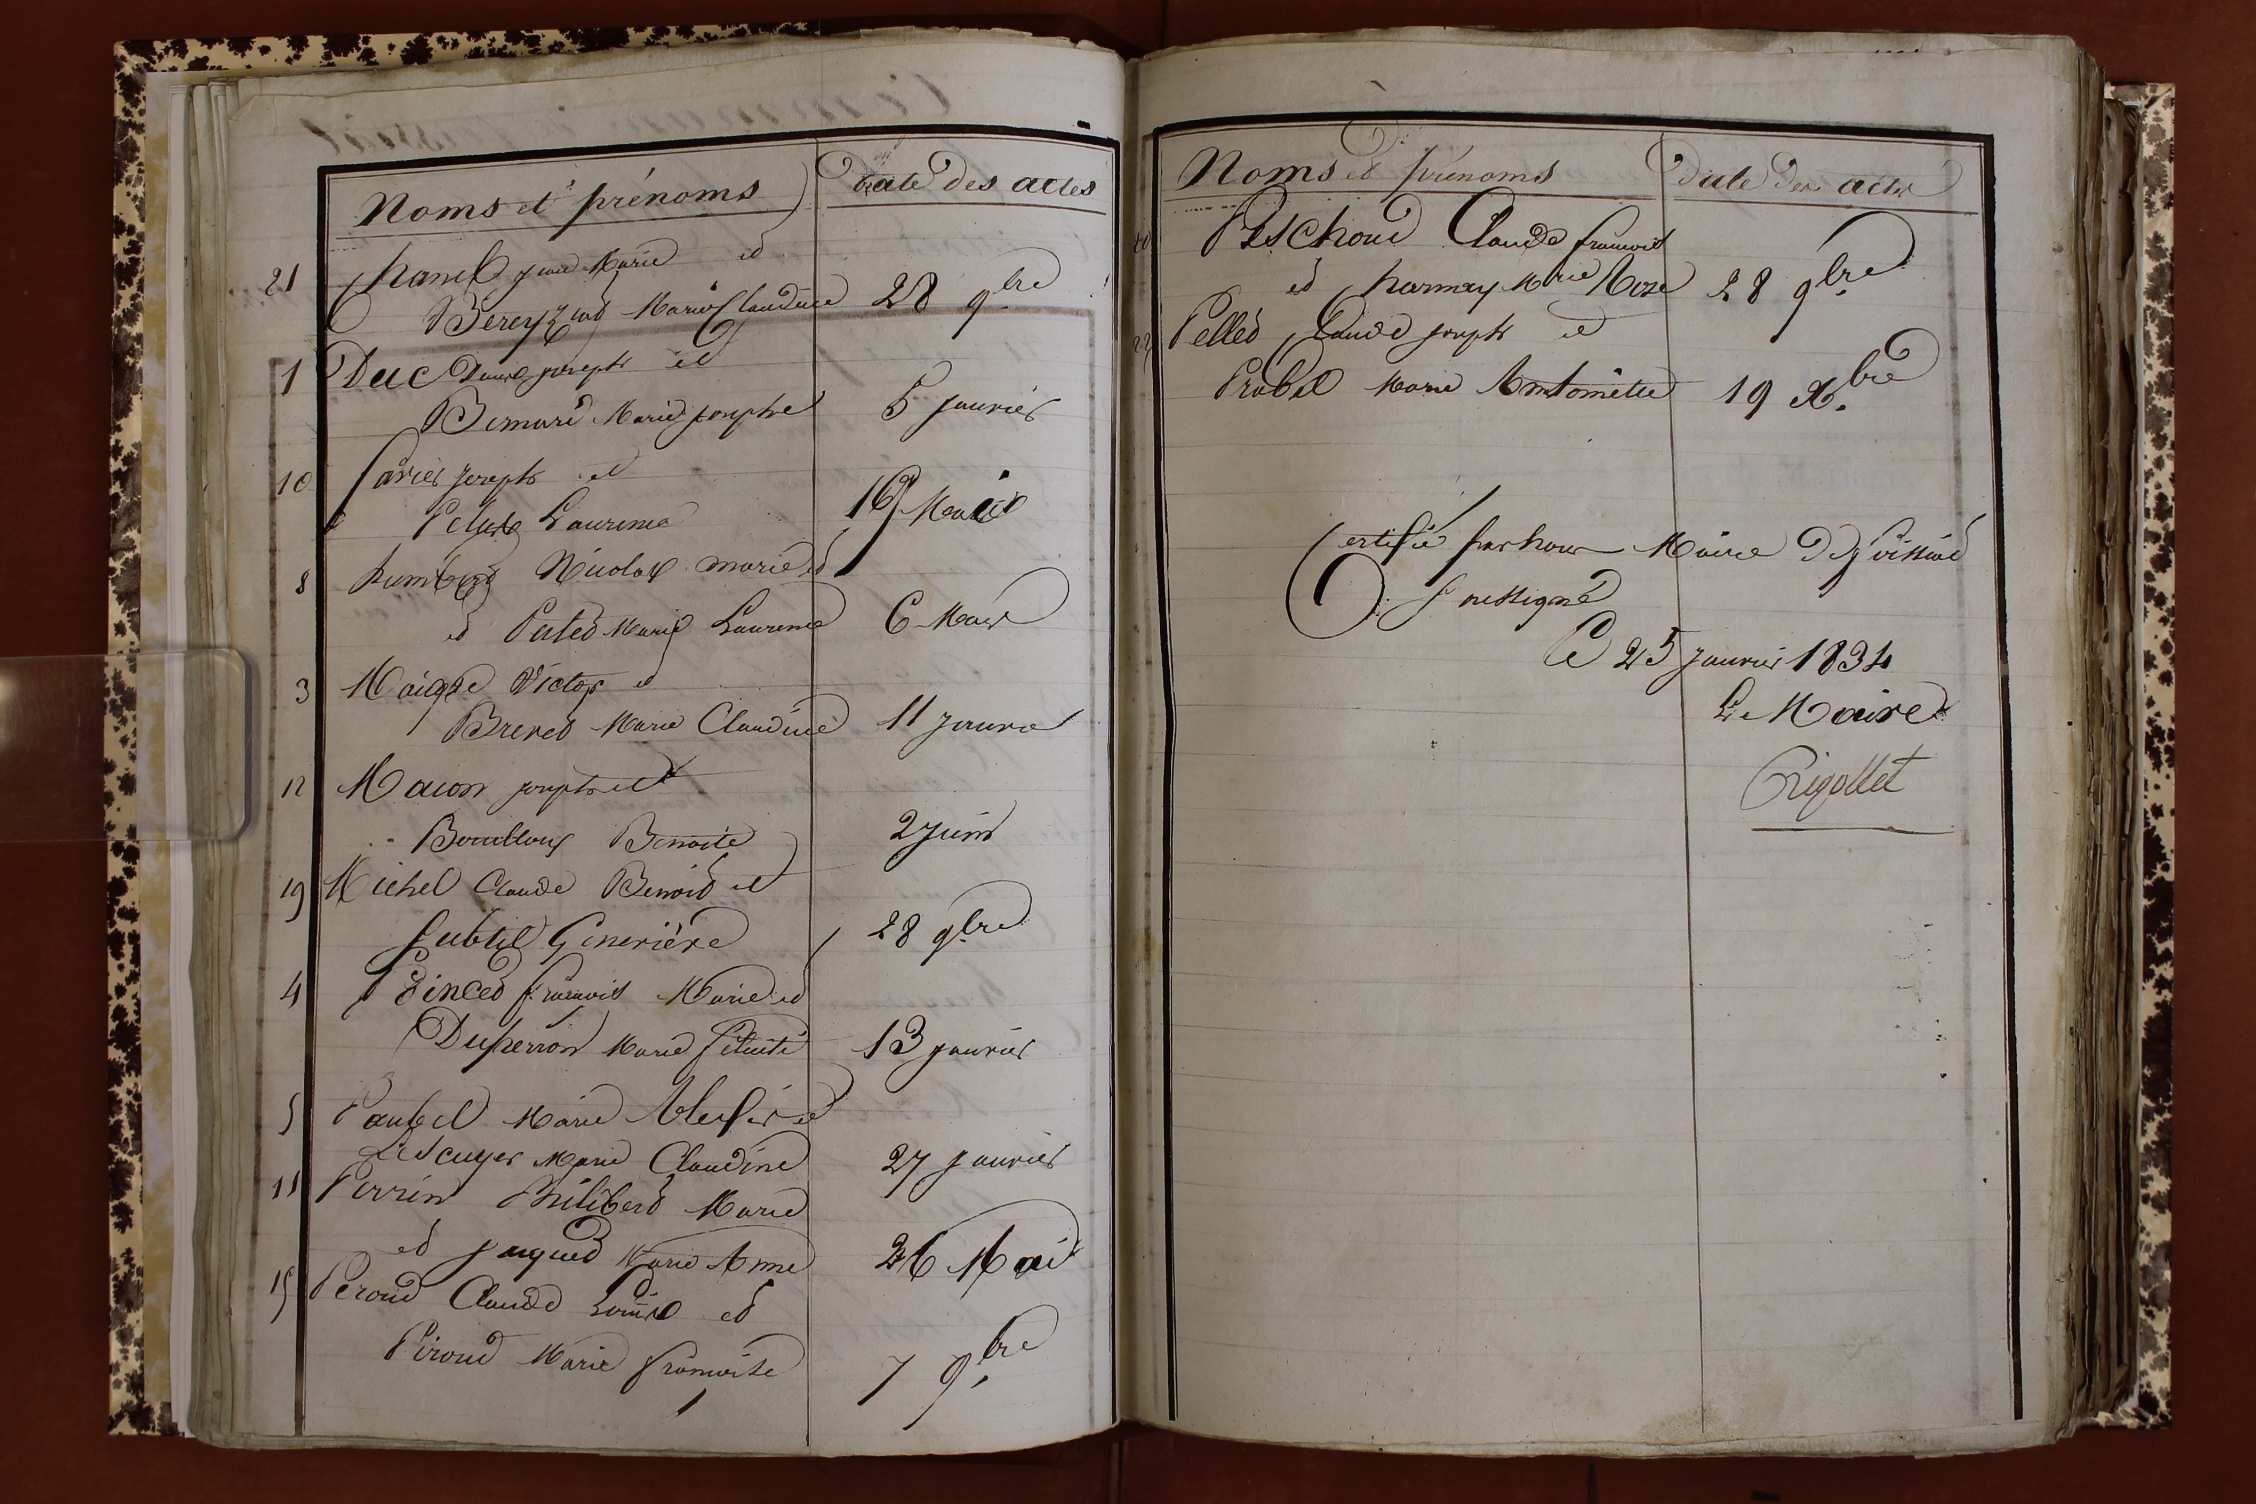 Noms et prénoms Date des actes
21 Chanel Jean Marie et
Bereyziat Marie Claudine 28 9bre
1 Duc Denis joseph et
Bernard Marie josephe 5 janvier
10 joseph et
Pelux Laurence 16 Mai
8 Humbert Nicolas marie et
et Patet Marie Laurence 6 Mars
3 Maigre Victor et
Brevet Marie Claudine 11 janvier
12 Macon joseph et
Bouilloux Benoite 2 juin
19 Michel Claude Benoit et
Subtil Genevière 28 9bre
4 Poincet francois Marie et
Duperron Marie felicité 13 janvier
5 Paubel Marie Alexis et
Lescuyer Marie Claudine 27 janvier
11 Perrin Philibert Marie
et jaquet Marie Anne 26 Mai
15 Peroud Claude Louis et
Piroud Marie francoise 7 9bre
Noms et prénoms Date des actes
20 Peschoud Claude francois
et Marie Rose 28 9bre
22 Pellet Claude joseph et
Probel Marie Antoinette 19 Xbre
Certifié par nous Maire de foissiat
soussigné
Ce 25 janvier 1834
Le Maire
Rigollet